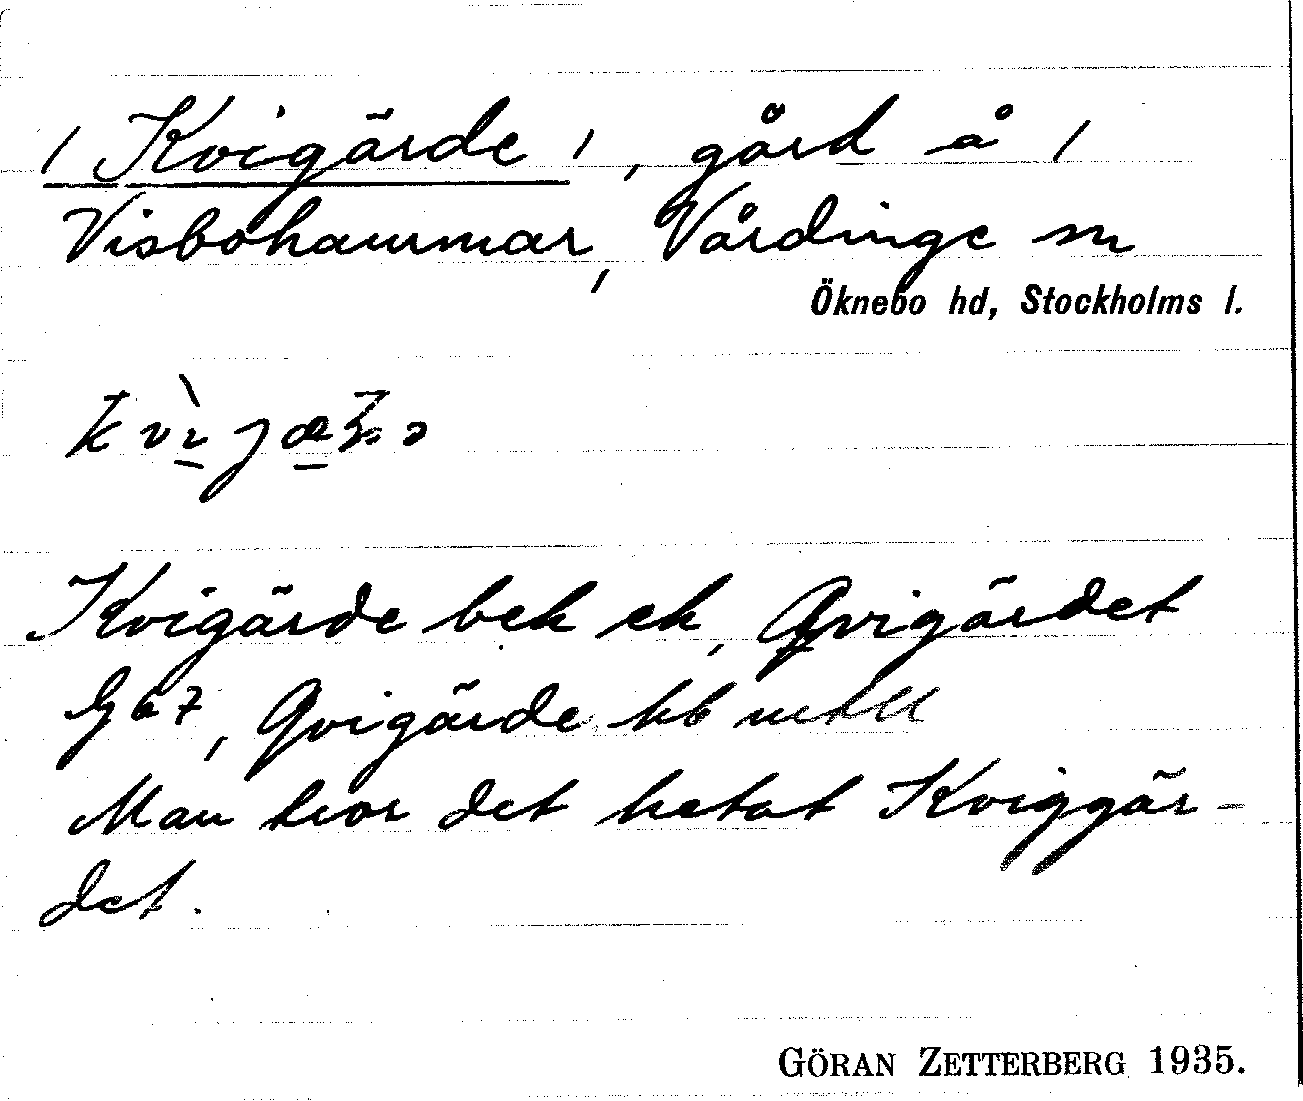 / Kvigärde /, gård å /
Visbohammar, Vårdinge sn
Öknebo hd, Stockholms l.
Kvigärde bek ek, Qvigärdet
G 67, Qvigärde hb
Man tror det hetat Kviggär-
det.
GÖRAN ZETTERBERG 1935.